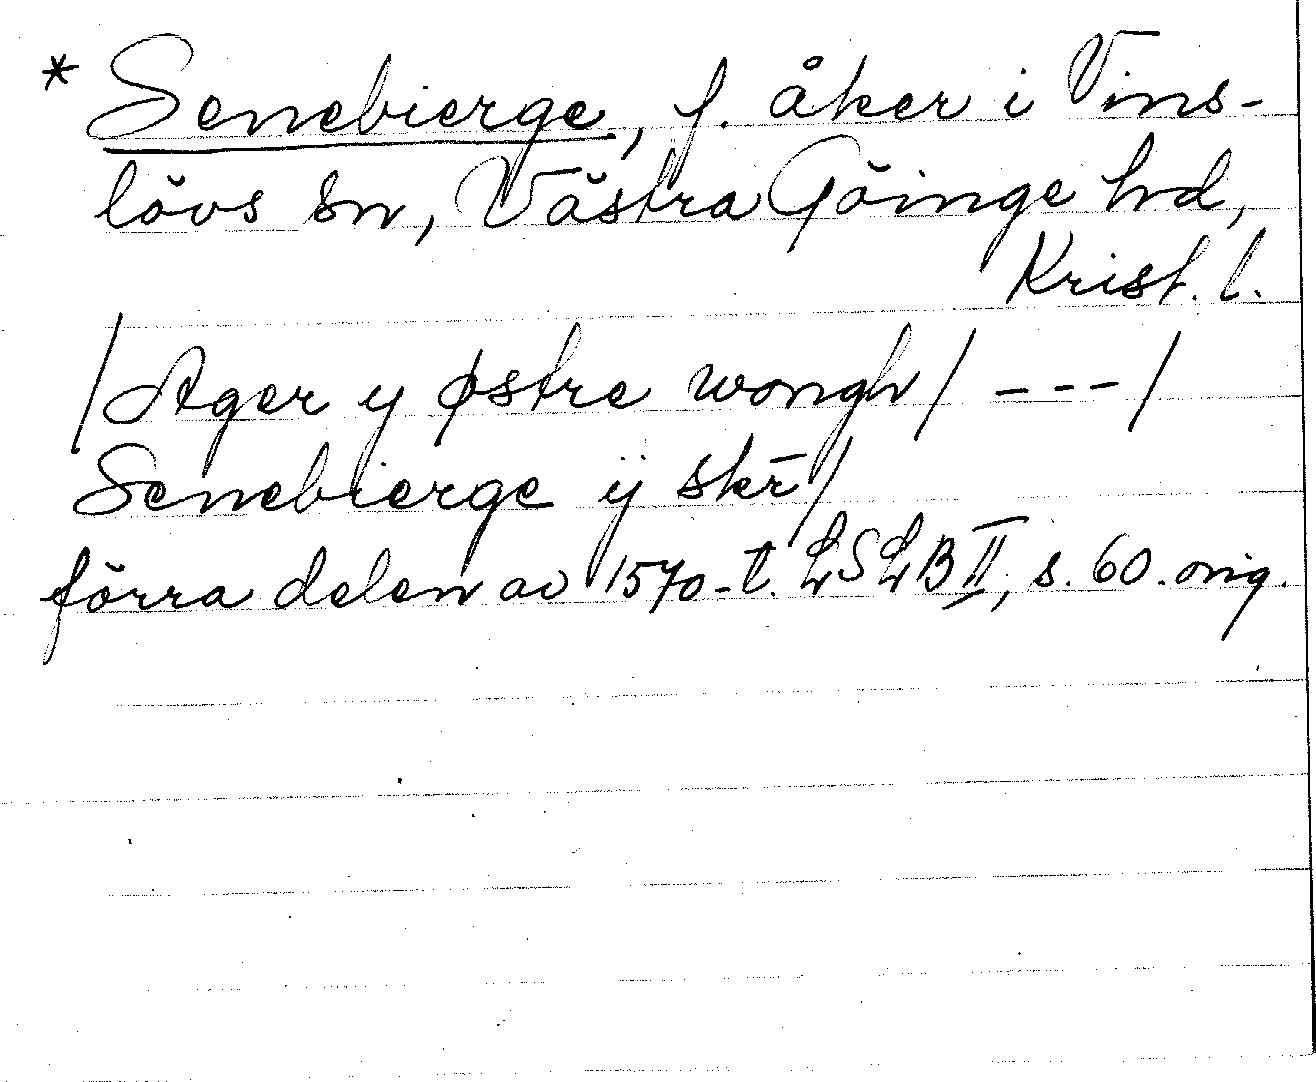 * Senebierge, f. åker i Vins-
lövs sn, Västra Göinge hd,
Krist. l.
/Ager y østre wongh/ --- /
Senebierge ÿ skr̄/
förra delen av 1570-t. LSLB II, s. 60. orig.